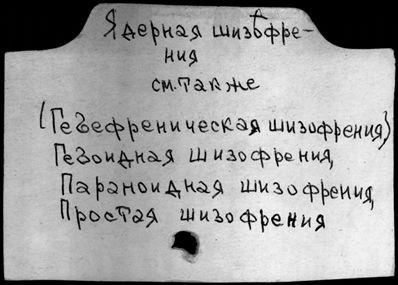 Ядерная шизофре-
ния
см. также
(Гебефреническая шизофрения)
Гебоидная шизофрения,
Параноидная шизофрения,
Простая шизофрения